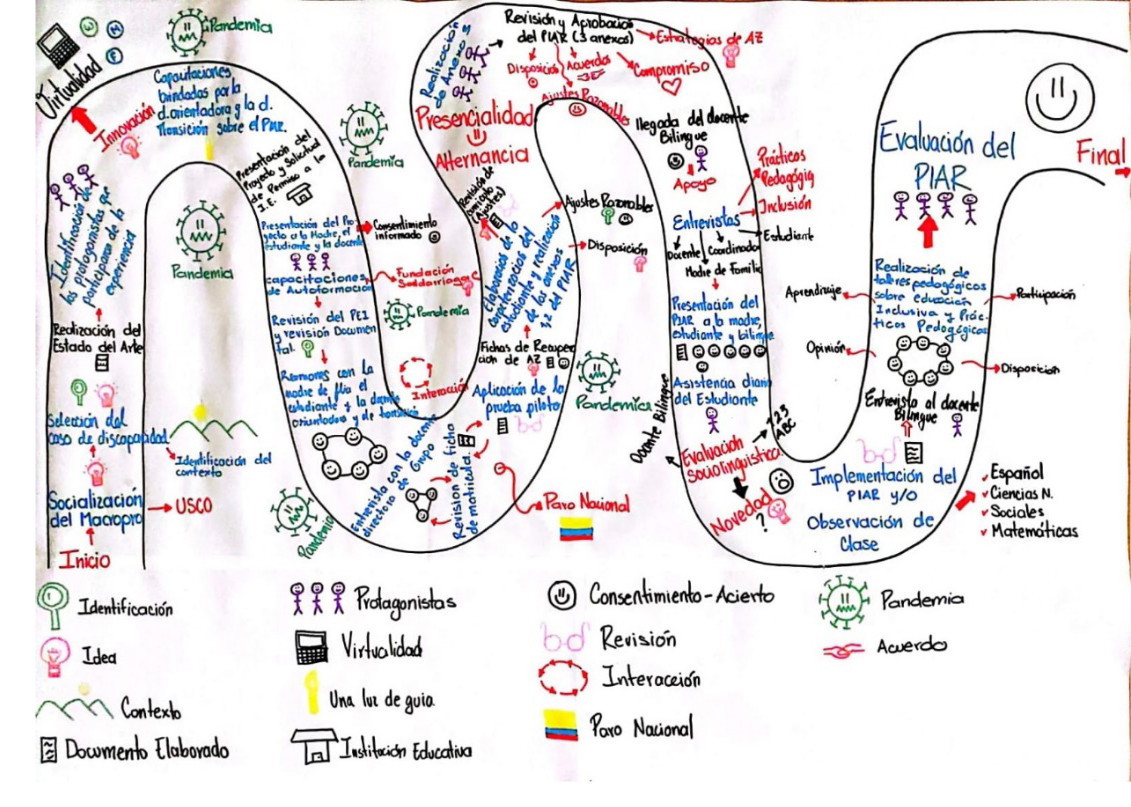 Inicio
Socialización
del Macropro
USCO
Selección del
caso de discapacidad
Identificación del
contexto
Realización del
Estado del Arte
Identificación de
los protagonistas que
participaran de la
experiencia
Innovación
Virtualidad
Pandemia
Capacitaciones
brindadas por la
d.orientadora y la d.
Transición sobre el PIAR.
Pandemia
Presentación del
Proyecto y Solicitud
de Permiso a la
I.E.
Pandemia
Presentación del Pro-
yecto a la Madre, el
Estudiante y la docente
Consentimiento
informado
capacitaciones
de Autoformación
Fundación
Revisión del PEI
y revisión Documen
tal.
Pandemia
Reuniones con la
madre de flia el
estudiante y la docente
orientadora y de transición
Interacción
Pandemia
Entrevista con la docente
directora de Grupo
Revisión de ficha
de matrícula.
Paro Nacional
Aplicación de la
prueba piloto
Pandemia
Fichas de Recuper
ción de AZ
Elaboración de la
caracterización del
estudiante y realización
de los anexos
1,2 del PIAR
Disposición
Ajustes Razonables
Revisión de
Ajustes)
Alternancia
Presencialidad
Realización
de Anexo 3
Revisión y Aprobación
del PIAR (3 anexos)
Estrategias de AZ
Disposición
Acuerdos
Compromiso
Ajustes Razonables
llegada del docente
Bilingue
Apoyo
Prácticas
Pedagógig
Inclusión
Entrevistas
Estudiante
Docente
Coordinador
Madre de Familia
Presentación del
PIAR a la madre,
estudiante y bilingue
Asistencia diaria
del Estudiante
Docente Bilingue
Evaluación
Sociolinguistica
123
ABC
Novedad
?
Implementación del
PIAR y/o
Observación de
Clase
Español
Ciencias N.
Sociales
Matemáticas
Entrevista al docente
Bilingue
Aprendizaje
Participación
Opinión
Disposición
Realización de
talleres pedagógicos
sobre educación
Inclusiva y Prác-
ticos Pedagógicos
Evaluación del
PIAR
Final
Identificación
Idea
Contexto
Documento Elaborado
Protagonistas
Virtualidad
Una luz de guia.
Institución Educativa
Consentimiento-Acierto
Revisión
Interacción
Paro Nacional
Pandemia
Acuerdo